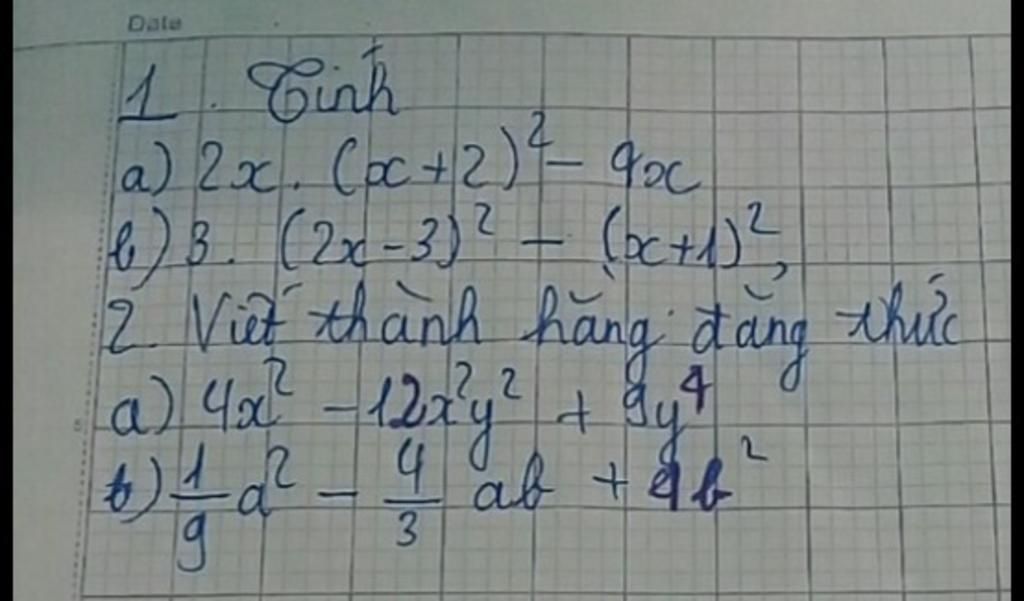 Date
1. Tính
a) 2x. (x+2)² - 4x
b) 3. (2x-3)² - (x+1)²,
2. Viết thành hằng đẳng thức
a) 4x² - 12x²y² + 9y⁴
b) 1/9 a² - 4/3 ab + 4b²